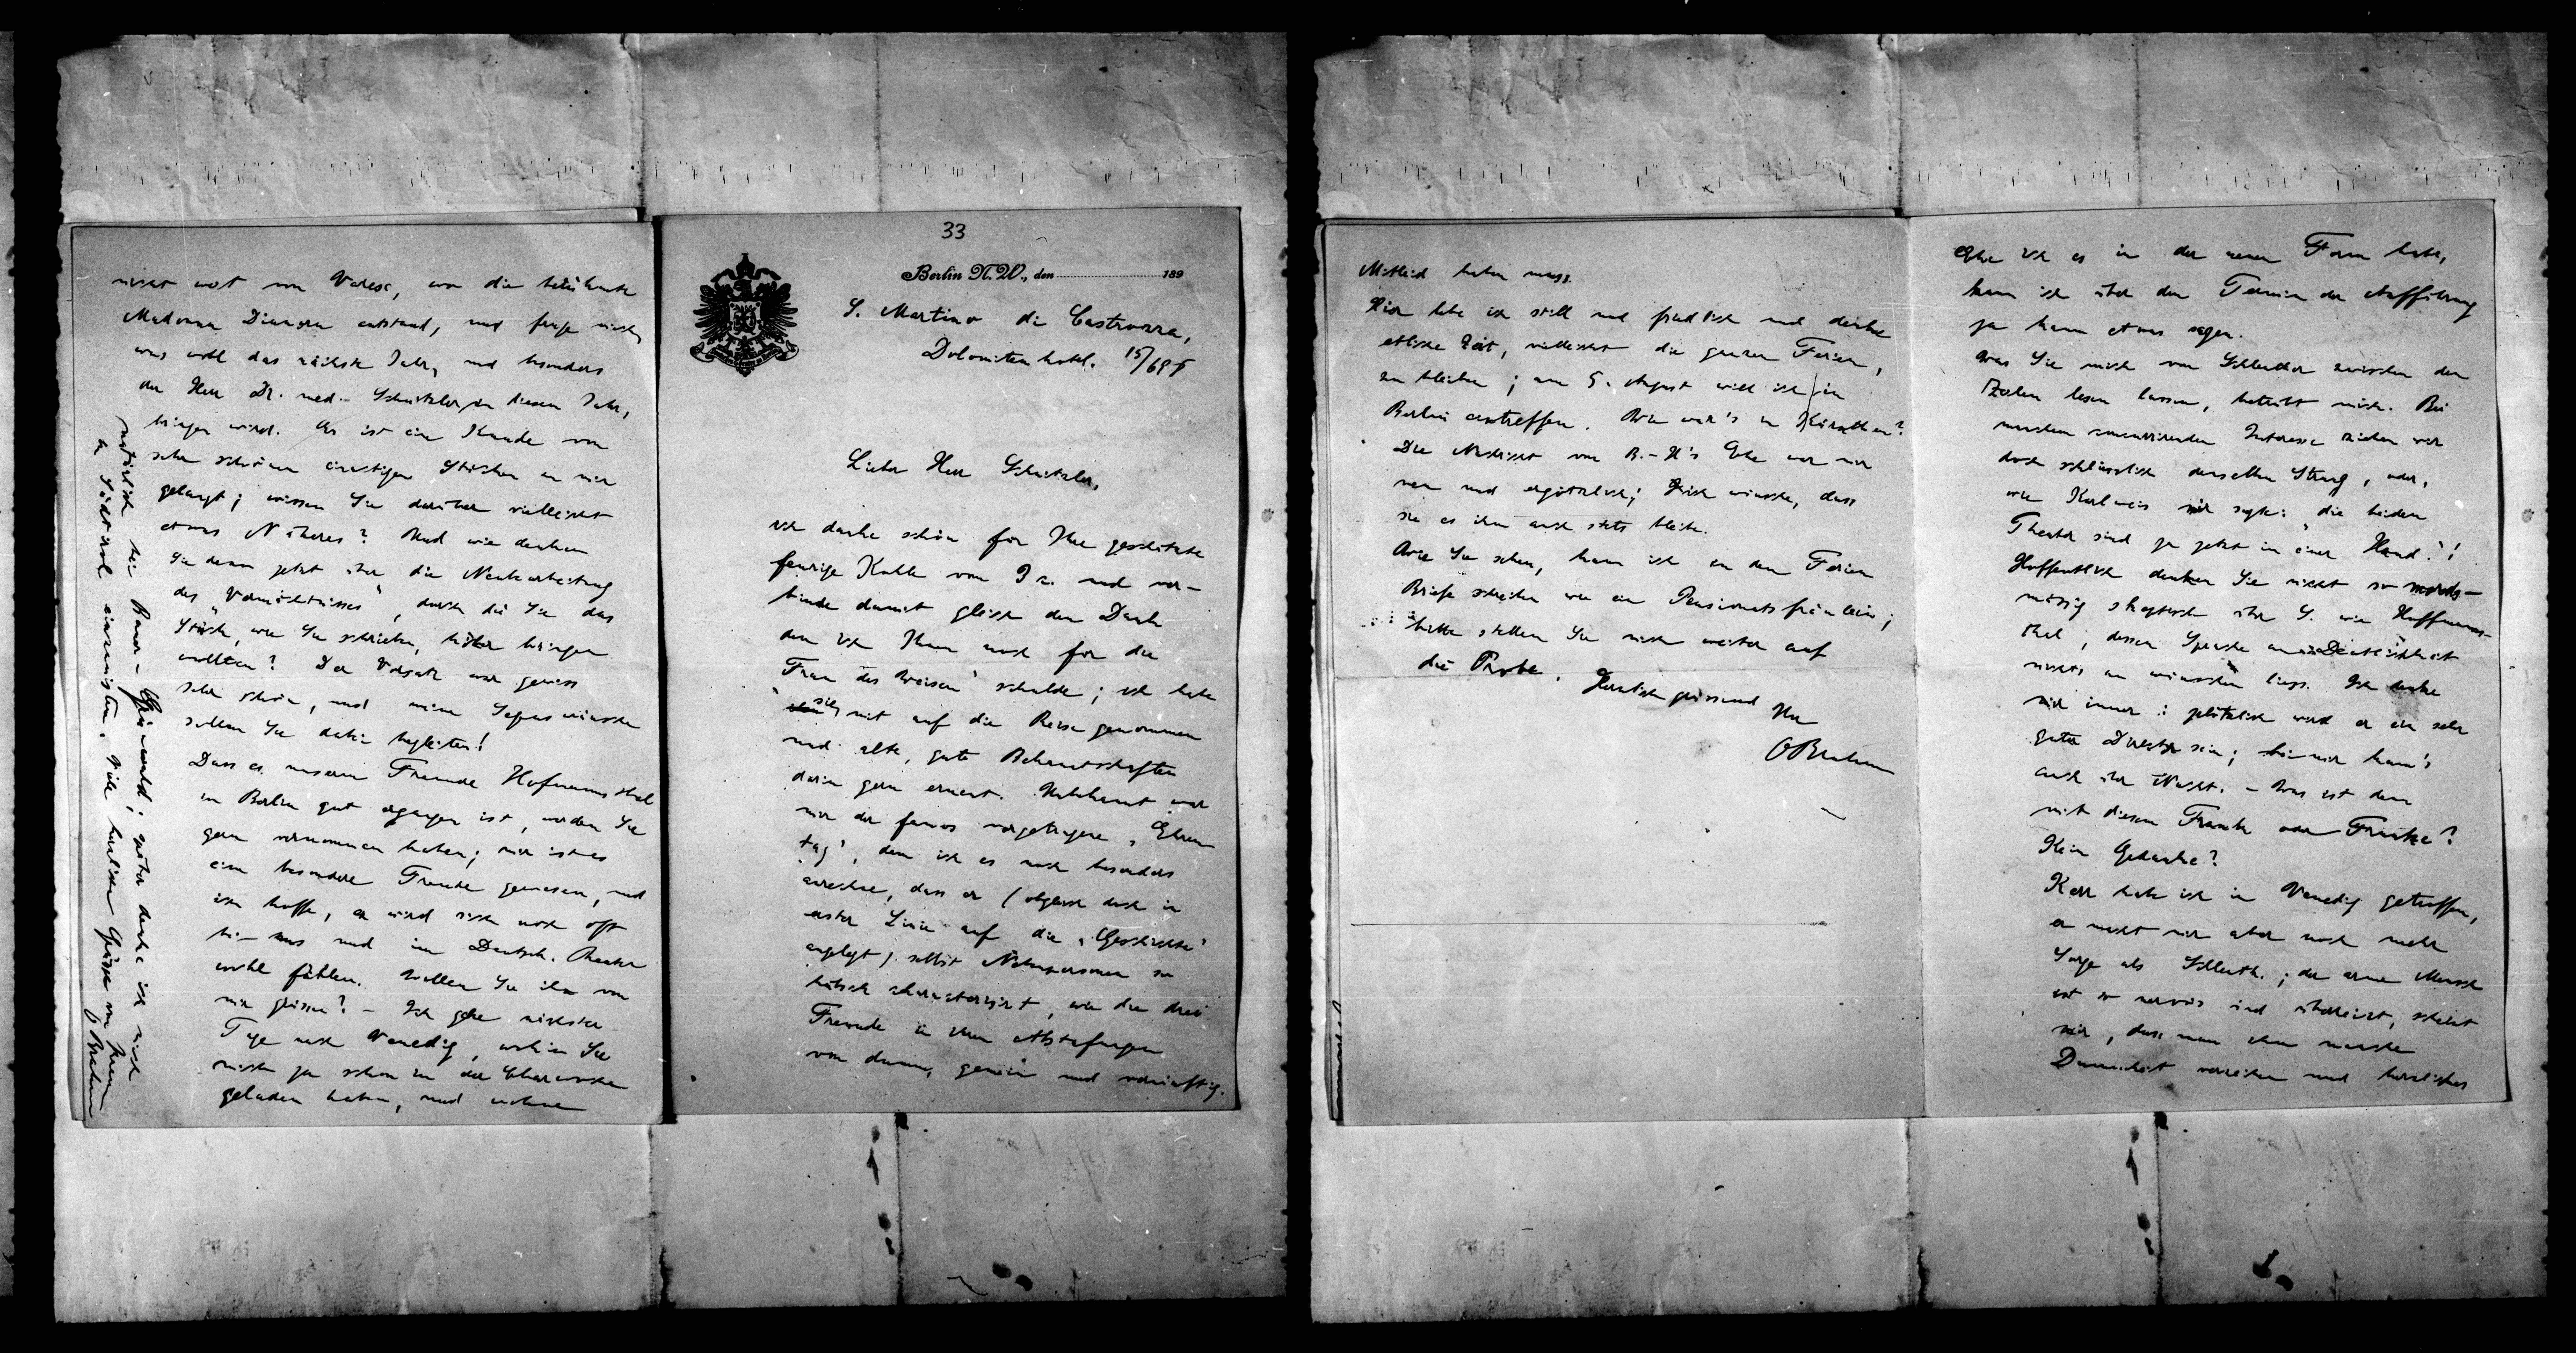 nicht weit von Varese, wo die berühmte
Madonna Dianora entstand, und frage mich,
was wohl das nächste Jahr, und besonders
der Herr Dr. med. Schnitzler in diesem Jahr,
bringen wird. Es ist eine Kunde von
sehr schönen einactigen Stücken zu mir
gelangt; wissen Sie darüber vielleicht
etwas Näheres? Und wie denken
Sie denn jetzt über die Neubearbeitung
des „Vermächtnisses", durch die Sie das
Stück, wie Sie schrieben, höher bringen
wollten? Der Vorsatz war gewiss
sehr schön, und meine Segenswünsche
sollen Sie dabei begleiten!
Dass es unserem Freunde Hofmannsthal
in Berlin gut ergangen ist, werden Sie
gern vernommen haben; mir ist es
eine besondere Freude gewesen, und
ich hoffe, er wird sich noch oft
bei uns und im Deutsch. Theater
wohl fühlen. Wollen Sie ihn von
mir grüssen? – Ich gehe nächster
Tage nach Venedig, wohin Sie
mich ja schon in der Charwoche
geladen haben, und wohne
natürlich bei Bauer-Grünwald; später denke ich mich
in Südtirol einzunisten. Viele herzliche Grüsse von Ihrem
O Brahm
33
Berlin N. W., den 189
S. Martino di Castrozza,
Dolomitenhotel. 15/6 98
Lieber Herr Schnitzler,
ich danke schön für Ihre geschätzte
feurige Kohle vom 9 d. und ver-
binde damit gleich den Dank
den ich Ihnen noch für die
„Frau des Weisen" schulde; ich habe
sie mit auf die Reise genommen
und alte, gute Bekanntschaften
darin gern erneut. Unbekannt war
mir der famos vorgetragene „Ehren-
tag", dem ich es noch besonders
anrechne, dass er (obgleich doch in
erster Linie auf die „Geschichte"
angelegt) selbst Nebenpersonen so
hübsch charakterisirt, wie die drei
Freunde in ihren Abstufungen
von dumm, gemein und vernünftig.
Ehe ich es in der neuen Form habe,
kann ich über den Termin der Aufführung
ja kaum etwas sagen.
Was Sie mich von Schlenther zwischen den
Zeilen lesen lassen, betrübt mich. Bei
manchem concurrirenden Interesse ziehen wir
doch schliesslich denselben Strang, oder,
wie Karlweis mir sagte: „die beiden
Theater sind ja jetzt in einer Hand"!
Hoffentlich denken Sie nicht so mords-
mässig skeptisch über S. wie Hoffmanns-
thal, dessen Sprache an Deutlichkeit
nichts zu wünschen liess. Ich denke
mir immer: plötzlich wird er ein sehr
guter Director sein; bei mir kam's
auch über Nacht. – Was ist denn
mit diesem Franck oder Francke?
Kein Gedanke?
Kerr habe ich in Venedig getroffen,
er macht mir aber noch mehr
Sorge als Schlenth.; der arme Mensch
ist so nervös und überreizt, scheint
mir, dass man ihm manche
Dummheit verzeihen und herzliches
Mitleid haben muss.
Hier lebe ich still und friedlich und denke
etliche Zeit, vielleicht die ganzen Ferien,
zu bleiben; am 5. August will ich in
Berlin eintreffen. Wie war's in Kärnthen?
Die Nachricht von B.-H's Ehe war mir
neu und ergötzlich; ich wünsche, dass
sie es ihm auch stets bleibe.
Wie Sie sehen, kann ich in den Ferien
Briefe schreiben wie ein Pensionatsfräulein;
bitte stellen Sie mich weiter auf
die Probe.
Herzlich grüssend Ihr
OBrahm